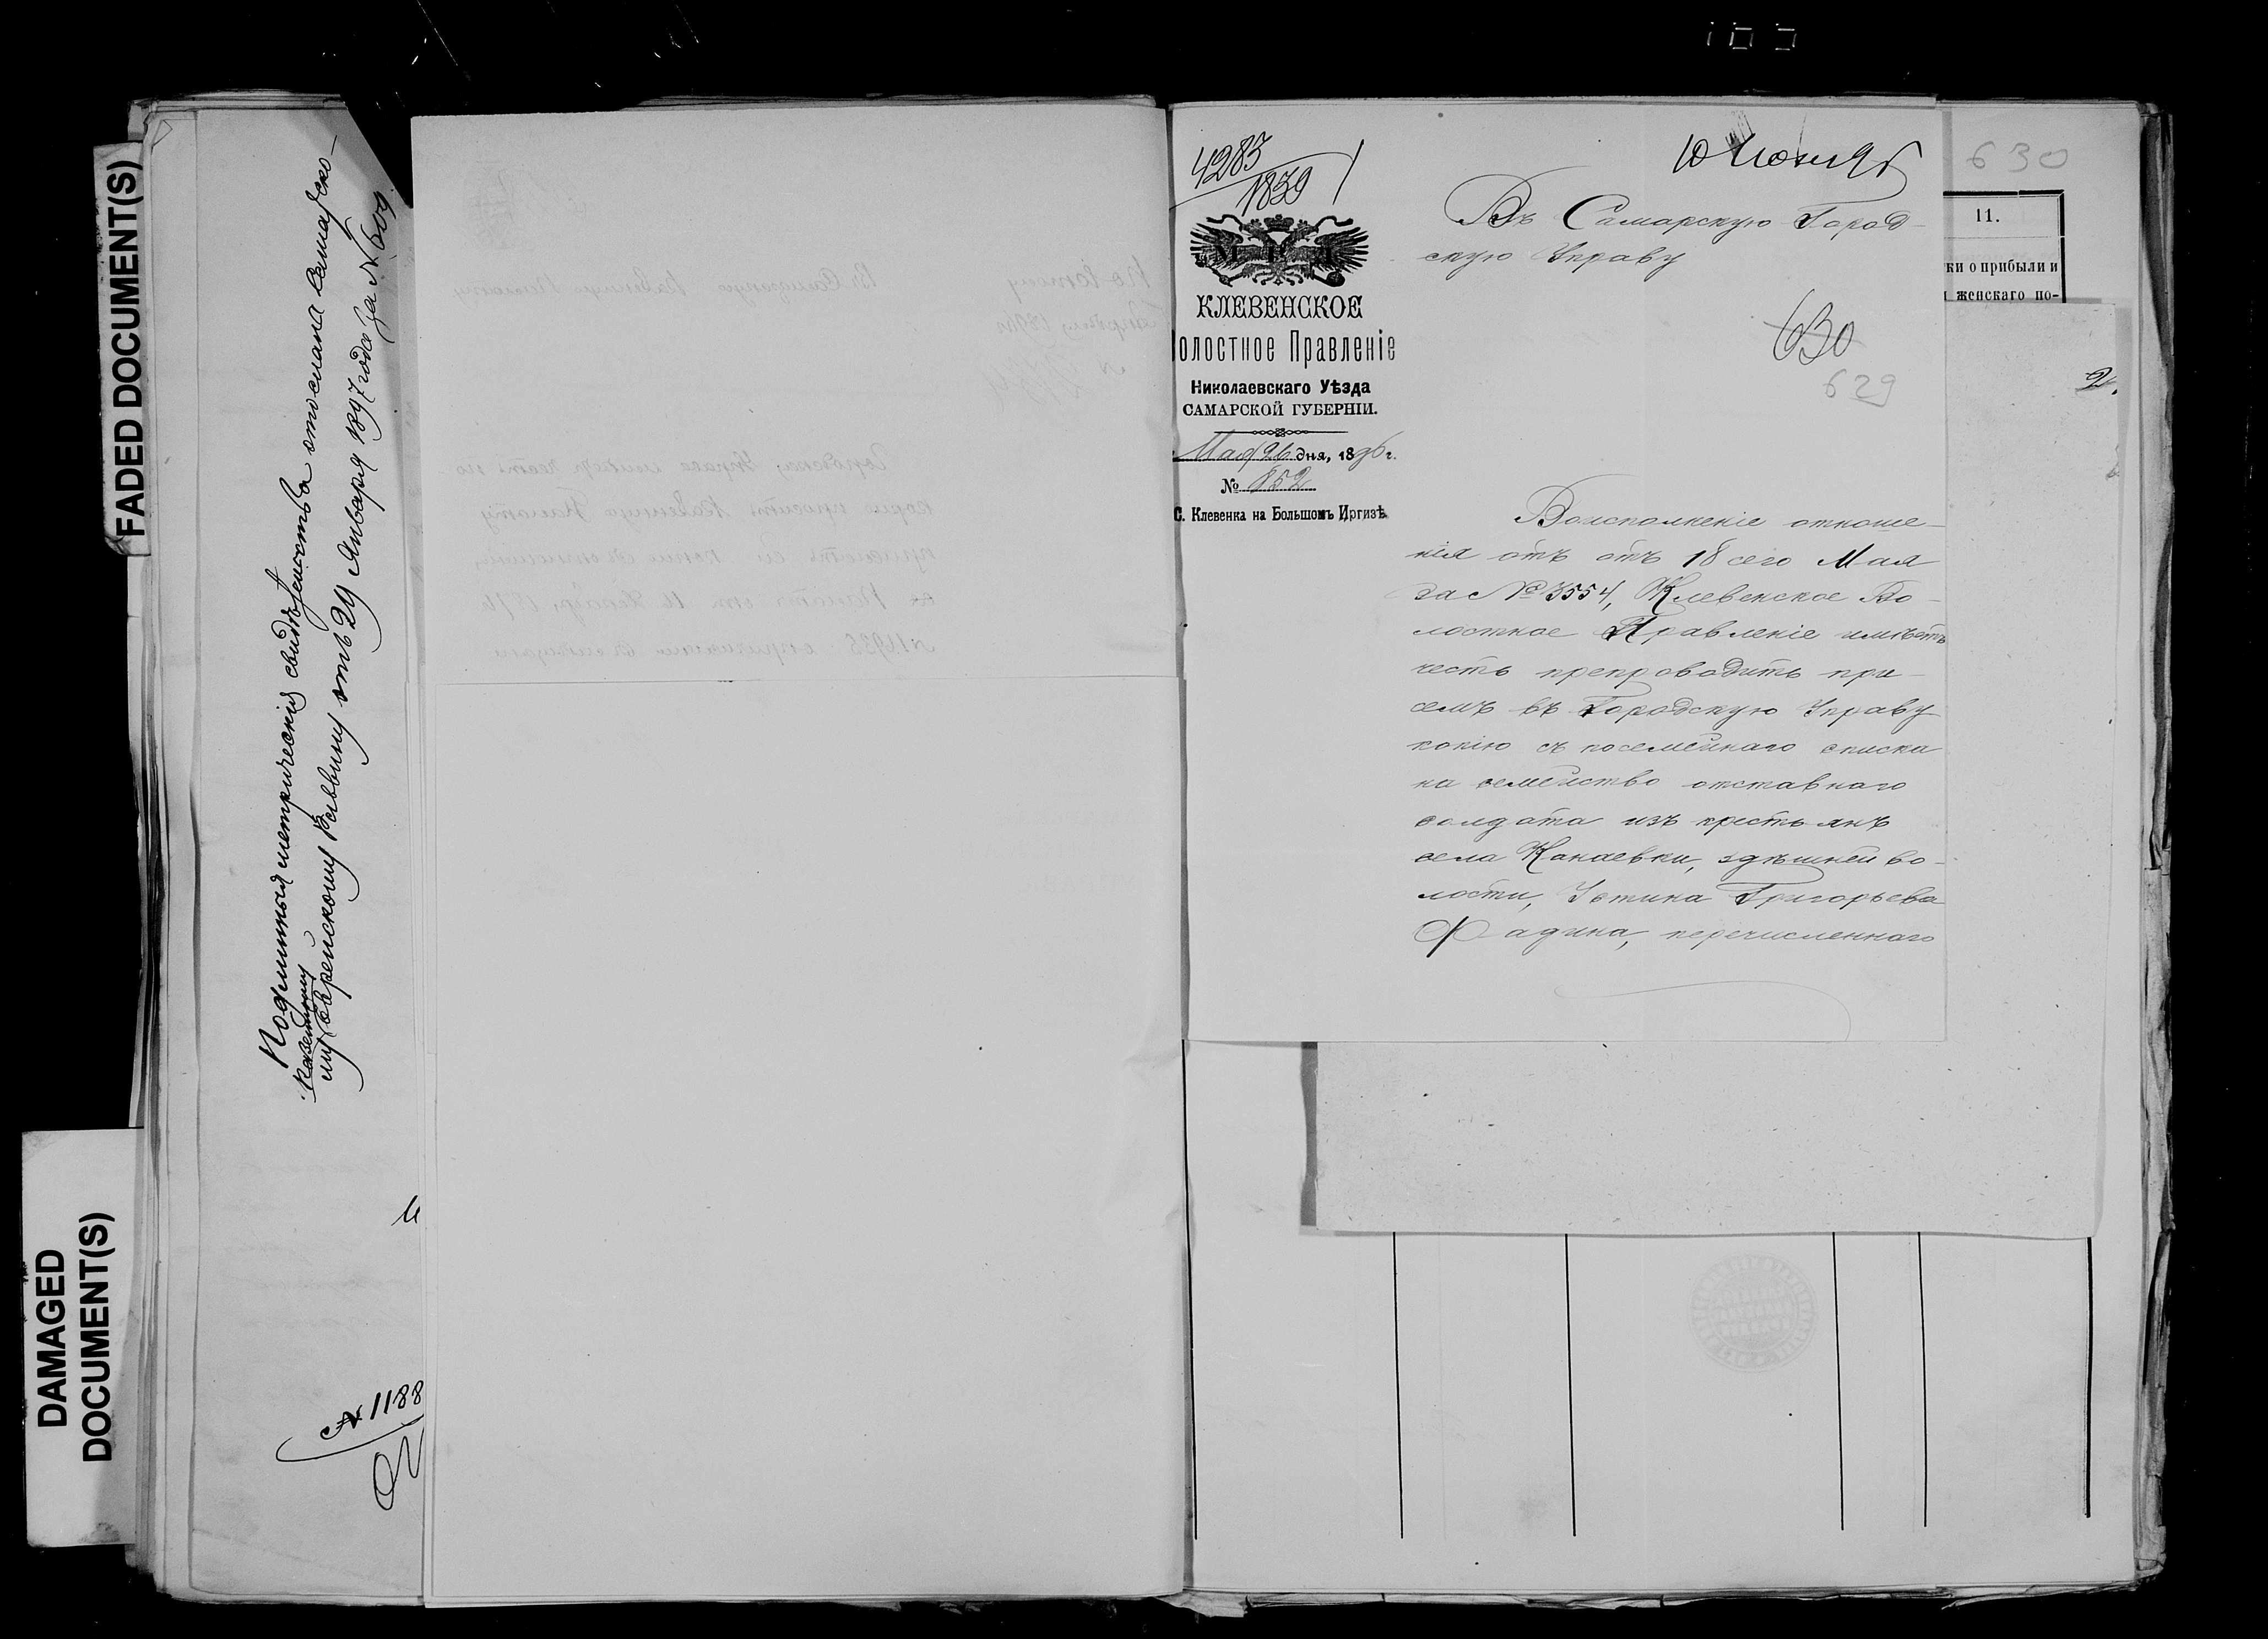 FADED DOCUMENT(S)
DAMAGED
DOCUMENT(S)
Подлинныя метрическія свидѣтельства отосланы Самарско-
Казенному
му Еврейскому Раввину отъ 29 Января 1897 года за № 609.
№ 1188
4283
1839
КЛЕВЕНСКОЕ
олостное Правленіе
Николаевскаго Уѣзда
САМАРСКОЙ ГУБЕРНІИ.
Мая 26 дня, 1896 г.
№ 852
С. Клевенка на Большомъ Иргизѣ
10 Июня 96
Въ Самарскую Город-
скую Управу
630
629
Воисполненіе отноше-
нія отъ отъ 18 сего Мая
за № 3554, Клевенское Во-
лостное Правленіе имѣетъ
честь препроводить при
семъ въ Городскую Управу
копію съ посемейнаго списка
на семейство отставнаго
солдата изъ крестьянъ
села Канаевки, здѣшней во-
лости, Устина Григорьева
Фадина, перечисленнаго
630
11.
ки о прибыли и
женскаго по-
2.